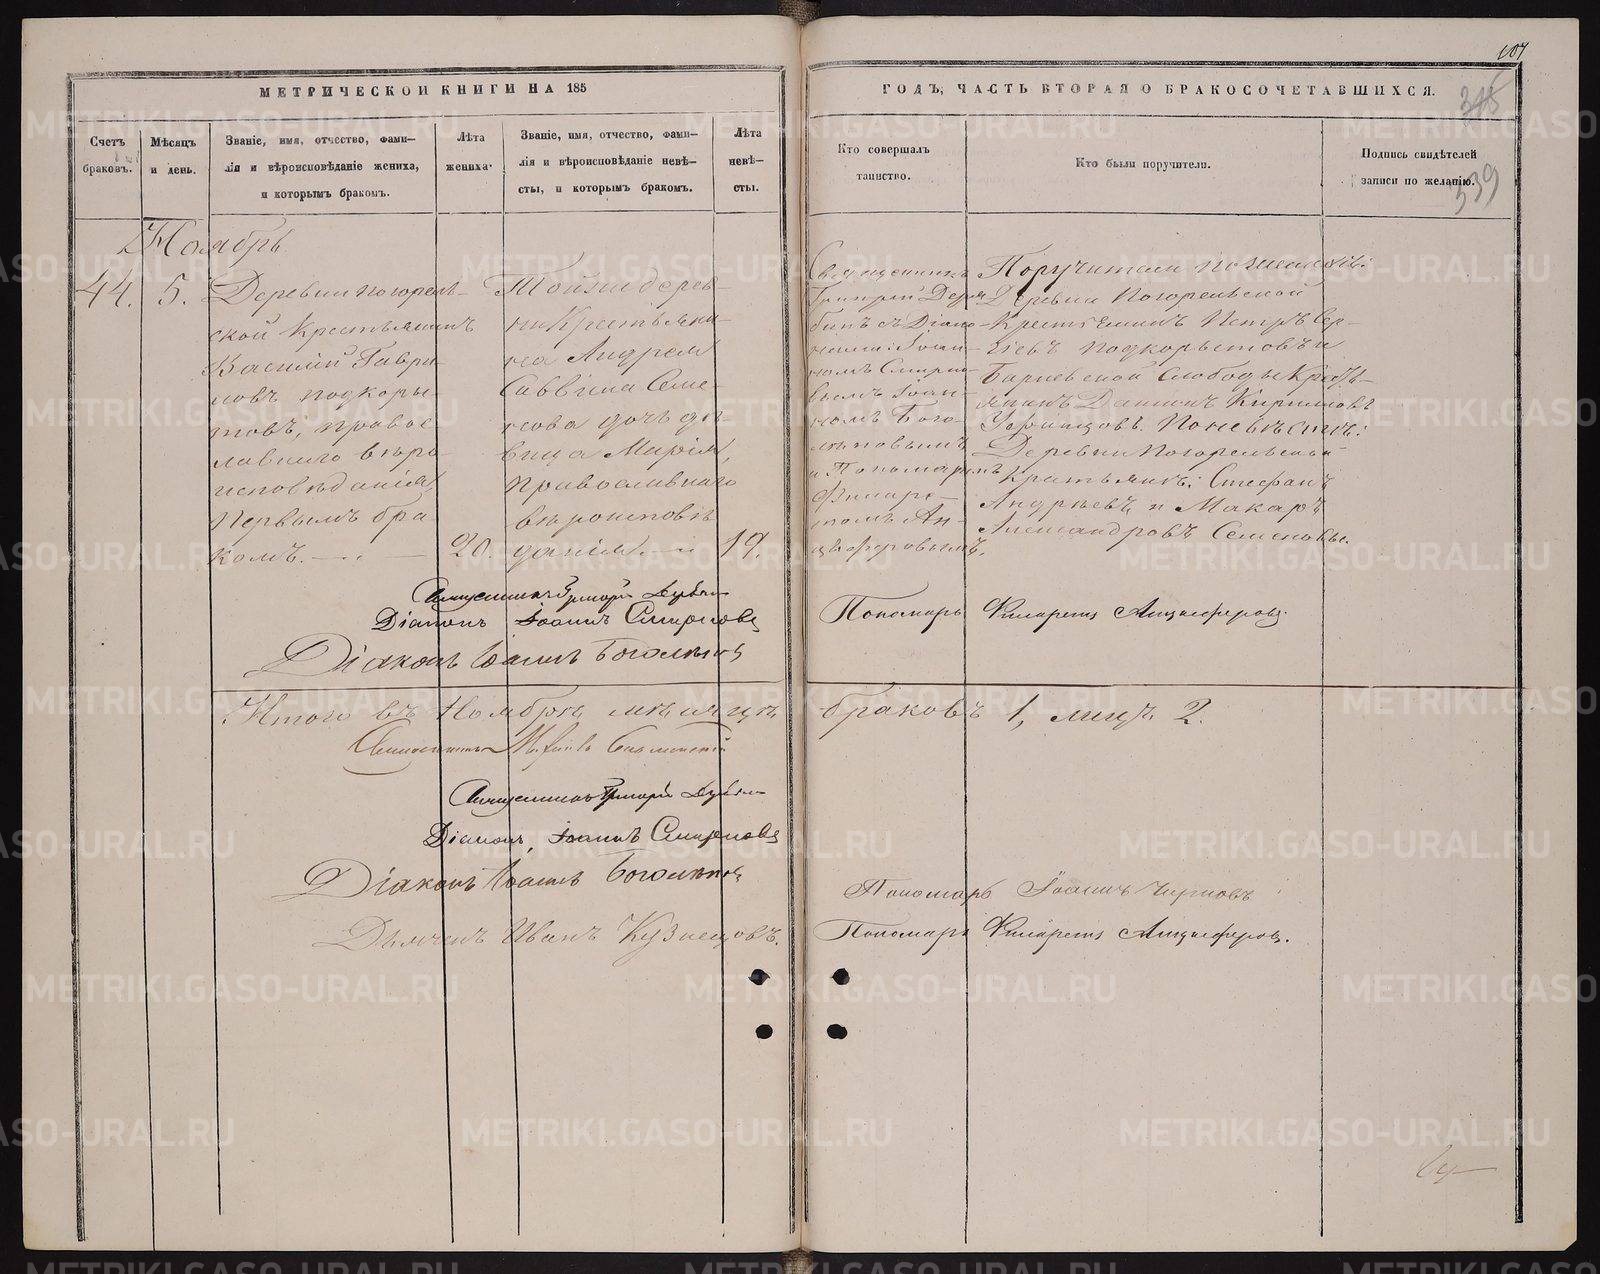 107
МЕТРИЧЕСКОЙ КНИГИ НА 185
ГОДЪ, ЧАСТЬ ВТОРАЯ О БРАКОСОЧЕТАВШИХСЯ.
315
539
Счетъ
браковъ.
Мѣсяцъ
и день.
Званіе, имя, отчество, фами-
лія и вѣроисповѣданіе жениха,
и которымъ бракомъ.
Лѣта
жениха.
Званіе, имя, отчество, фами-
лія и вѣроисповѣданіе невѣ-
сты, и которымъ бракомъ.
Лѣта
невѣ-
сты.
Кто совершалъ
таинство.
Кто были поручители.
Подпись свидѣтелей
записи по желанію.
Ноябрь
44.
5.
Деревни Погорѣль-
ской Крестьянинъ
Василій Гаври-
ловъ Подкоры-
товъ, правос-
лавнаго вѣро
исповѣданія,
первымъ бра
комъ.
20.
Той же дерев-
ни Крестьяни-
на Андрея
Саввина Семе-
нова дочь дѣ
вица Марія,
православнаго
вѣроисповѣ
данія.
19.
Священникъ
Григорій
съ Діако-
нами: Іоан-
номъ Смирно-
вымъ Іоан-
номъ Бого-
лѣповымъ
и Пономаремъ
Филаре-
томъ Ан-
циферовымъ.
Поручители по женихѣ:
Деревни Погорѣльской
Крестьянинъ Петръ Сер-
гѣевъ Подкорытовъ и
Барневской Слободы Кресть-
янинъ Данилъ Кириловъ
По невѣстѣ:
Деревни Погорѣльской
Крестьяне: Стефанъ
Андреевъ и Макаръ
Александровъ Семеновы.
Священникъ Григорій
Діаконъ Іоаннъ Смирновъ
Діаконъ Іоаннъ Боголѣповъ
Пономарь Филаретъ Анциферовъ.
Итого въ Ноябрѣ мѣсяцѣ
браковъ 1, лицъ 2.
Священникъ
Священникъ Григорій
Діаконъ, Іоаннъ Смирновъ
Діаконъ Іоаннъ Боголѣповъ
Дьячекъ Иванъ Кузнецовъ.
Пономарь Іоаннъ Черновъ
Пономарь Филаретъ Анциферовъ.
METRIKI.GASO-URAL.RU